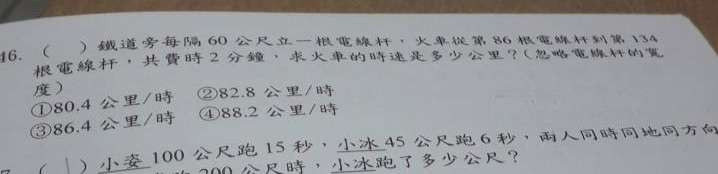 16. (　) 鐵道旁每隔 60 公尺立一根電線杆，火車從第 86 根電線杆到第 134
根電線杆，共費時 2 分鐘，求火車的時速是多少公里？(忽略電線杆的寬
度)
①80.4 公里/時　②82.8 公里/時
③86.4 公里/時　④88.2 公里/時
( ) 小姿 100 公尺跑 15 秒，小冰 45 公尺跑 6 秒，兩人同時同地同方向
200 公尺時，小冰跑了多少公尺？